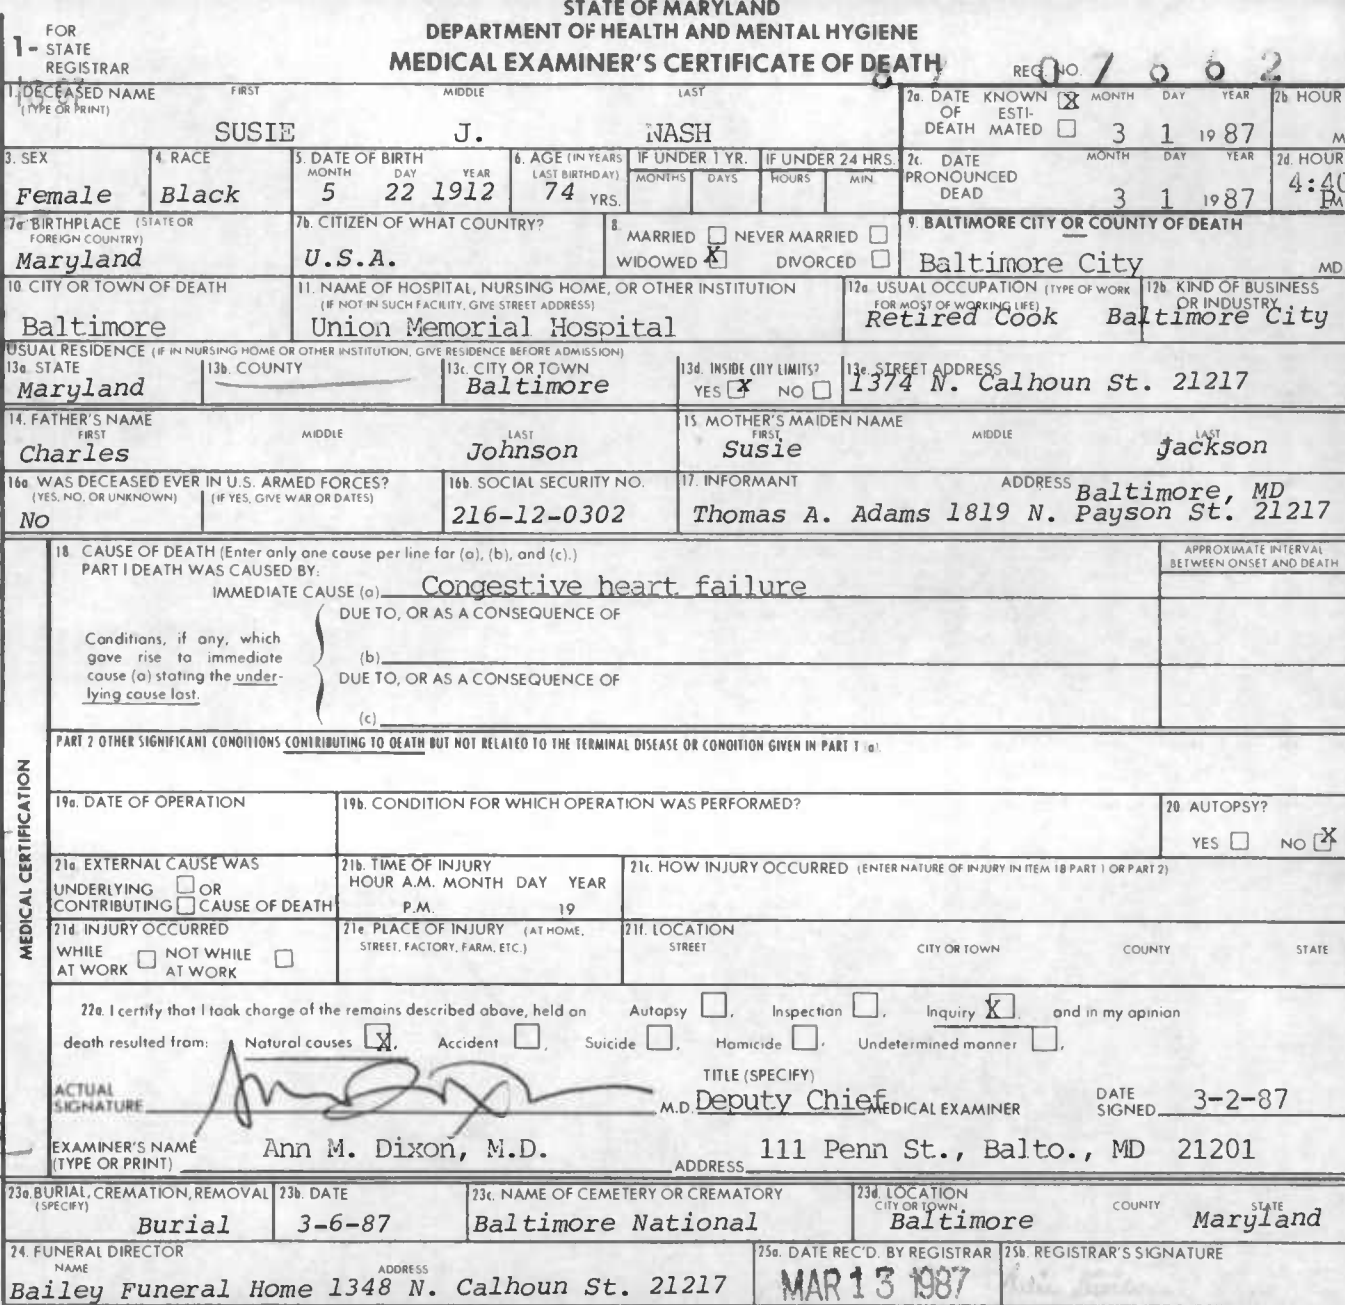 STATE OF MARYLAND
DEPARTMENT OF HEALTH AND MENTAL HYGIENE
MEDICAL EXAMINER'S CERTIFICATE OF DEATH
1- FOR STATE REGISTRAR
REG. NO. 07662
1. DECEASED NAME (TYPE OR PRINT) FIRST MIDDLE LAST
SUSIE J. NASH
2a. DATE OF DEATH KNOWN X ESTIMATED MONTH DAY YEAR
3 1 1987
2b HOUR M
3. SEX
Female
4. RACE
Black
5. DATE OF BIRTH MONTH DAY YEAR
5 22 1912
6. AGE (IN YEARS LAST BIRTHDAY)
74 YRS.
IF UNDER 1 YR. MONTHS DAYS
IF UNDER 24 HRS. HOURS MIN.
2c. DATE PRONOUNCED DEAD MONTH DAY YEAR
3 1 1987
2d. HOUR
4:40 PM
7a BIRTHPLACE (STATE OR FOREIGN COUNTRY)
Maryland
7b. CITIZEN OF WHAT COUNTRY?
U.S.A.
8. MARRIED NEVER MARRIED
WIDOWED X DIVORCED
9. BALTIMORE CITY OR COUNTY OF DEATH
Baltimore City MD
10. CITY OR TOWN OF DEATH
Baltimore
11. NAME OF HOSPITAL, NURSING HOME, OR OTHER INSTITUTION
(IF NOT IN SUCH FACILITY, GIVE STREET ADDRESS)
Union Memorial Hospital
12a. USUAL OCCUPATION (TYPE OF WORK FOR MOST OF WORKING LIFE)
Retired Cook
12b. KIND OF BUSINESS OR INDUSTRY
Baltimore City
USUAL RESIDENCE (IF IN NURSING HOME OR OTHER INSTITUTION, GIVE RESIDENCE BEFORE ADMISSION)
13a. STATE
Maryland
13b. COUNTY
13c. CITY OR TOWN
Baltimore
13d. INSIDE CITY LIMITS?
YES X NO
13e. STREET ADDRESS
1374 N. Calhoun St. 21217
14. FATHER'S NAME FIRST MIDDLE LAST
Charles Johnson
15. MOTHER'S MAIDEN NAME FIRST MIDDLE LAST
Susie Jackson
16a. WAS DECEASED EVER IN U.S. ARMED FORCES?
(YES, NO, OR UNKNOWN) (IF YES, GIVE WAR OR DATES)
No
16b. SOCIAL SECURITY NO.
216-12-0302
17. INFORMANT ADDRESS
Baltimore, MD
Thomas A. Adams 1819 N. Payson St. 21217
MEDICAL CERTIFICATION
18. CAUSE OF DEATH (Enter only one cause per line for (a), (b), and (c).)
PART I DEATH WAS CAUSED BY:
IMMEDIATE CAUSE (a) Congestive heart failure
APPROXIMATE INTERVAL BETWEEN ONSET AND DEATH
DUE TO, OR AS A CONSEQUENCE OF
Conditions, if any, which gave rise to immediate cause (a) stating the underlying cause last.
(b)
DUE TO, OR AS A CONSEQUENCE OF
(c)
PART 2 OTHER SIGNIFICANT CONDITIONS CONTRIBUTING TO DEATH BUT NOT RELATED TO THE TERMINAL DISEASE OR CONDITION GIVEN IN PART 1 (a).
19a. DATE OF OPERATION
19b. CONDITION FOR WHICH OPERATION WAS PERFORMED?
20. AUTOPSY?
YES NO X
21a. EXTERNAL CAUSE WAS
UNDERLYING OR
CONTRIBUTING CAUSE OF DEATH
21b. TIME OF INJURY
HOUR A.M. MONTH DAY YEAR
P.M. 19
21c. HOW INJURY OCCURRED (ENTER NATURE OF INJURY IN ITEM 18 PART 1 OR PART 2)
21d. INJURY OCCURRED
WHILE AT WORK NOT WHILE AT WORK
21e. PLACE OF INJURY (AT HOME, STREET, FACTORY, FARM, ETC.)
21f. LOCATION
STREET CITY OR TOWN COUNTY STATE
22a. I certify that I took charge of the remains described above, held an Autopsy , Inspection , Inquiry X , and in my opinion
death resulted from: Natural causes X, Accident , Suicide , Homicide , Undetermined manner ,
ACTUAL SIGNATURE M.D.
TITLE (SPECIFY)
Deputy Chief MEDICAL EXAMINER
DATE SIGNED 3-2-87
EXAMINER'S NAME (TYPE OR PRINT) Ann M. Dixon, M.D.
ADDRESS 111 Penn St., Balto., MD 21201
23a. BURIAL, CREMATION, REMOVAL (SPECIFY)
Burial
23b. DATE
3-6-87
23c. NAME OF CEMETERY OR CREMATORY
Baltimore National
23d. LOCATION CITY OR TOWN COUNTY STATE
Baltimore Maryland
24. FUNERAL DIRECTOR
NAME ADDRESS
Bailey Funeral Home 1348 N. Calhoun St. 21217
25a. DATE REC'D. BY REGISTRAR
MAR 13 1987
25b. REGISTRAR'S SIGNATURE